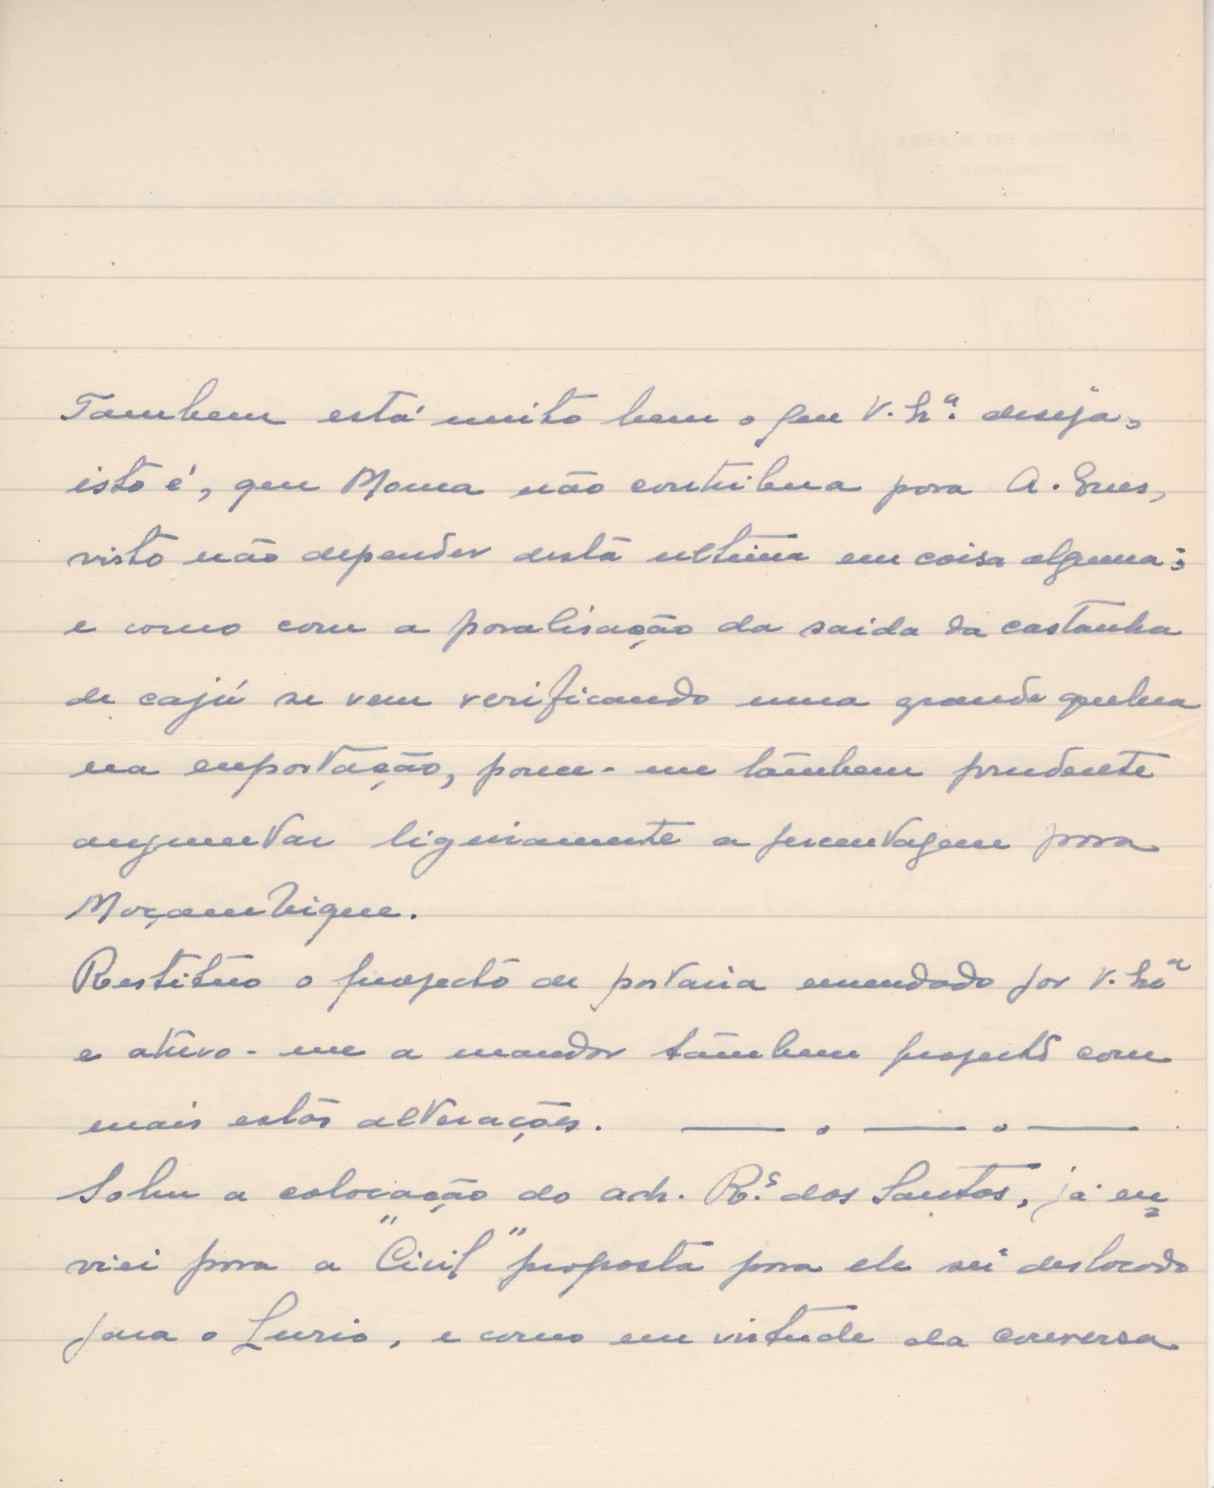 Tambem está muito bem o que V. Sª. deseja,
isto é, que Moma não contribua para A. Enes,
visto não depender desta ultima em coisa alguma;
e como com a paralisação da saida da castanha
de cajú se vem verificando uma grande quebra
na exportação, parece-me tambem prudente
augmentar ligeiramente a percentagem para
Moçambique.
Restituo o projecto de portaria emendado por V. Sª
e atrevo-me a mandar tambem projecto com
mais estas alterações. — . — . —
Sobre a colocação do adm. R.s dos Santos, já en
viei para a "Civil" proposta para ele ser deslocado
para o Lurio, e como em virtude da conversa